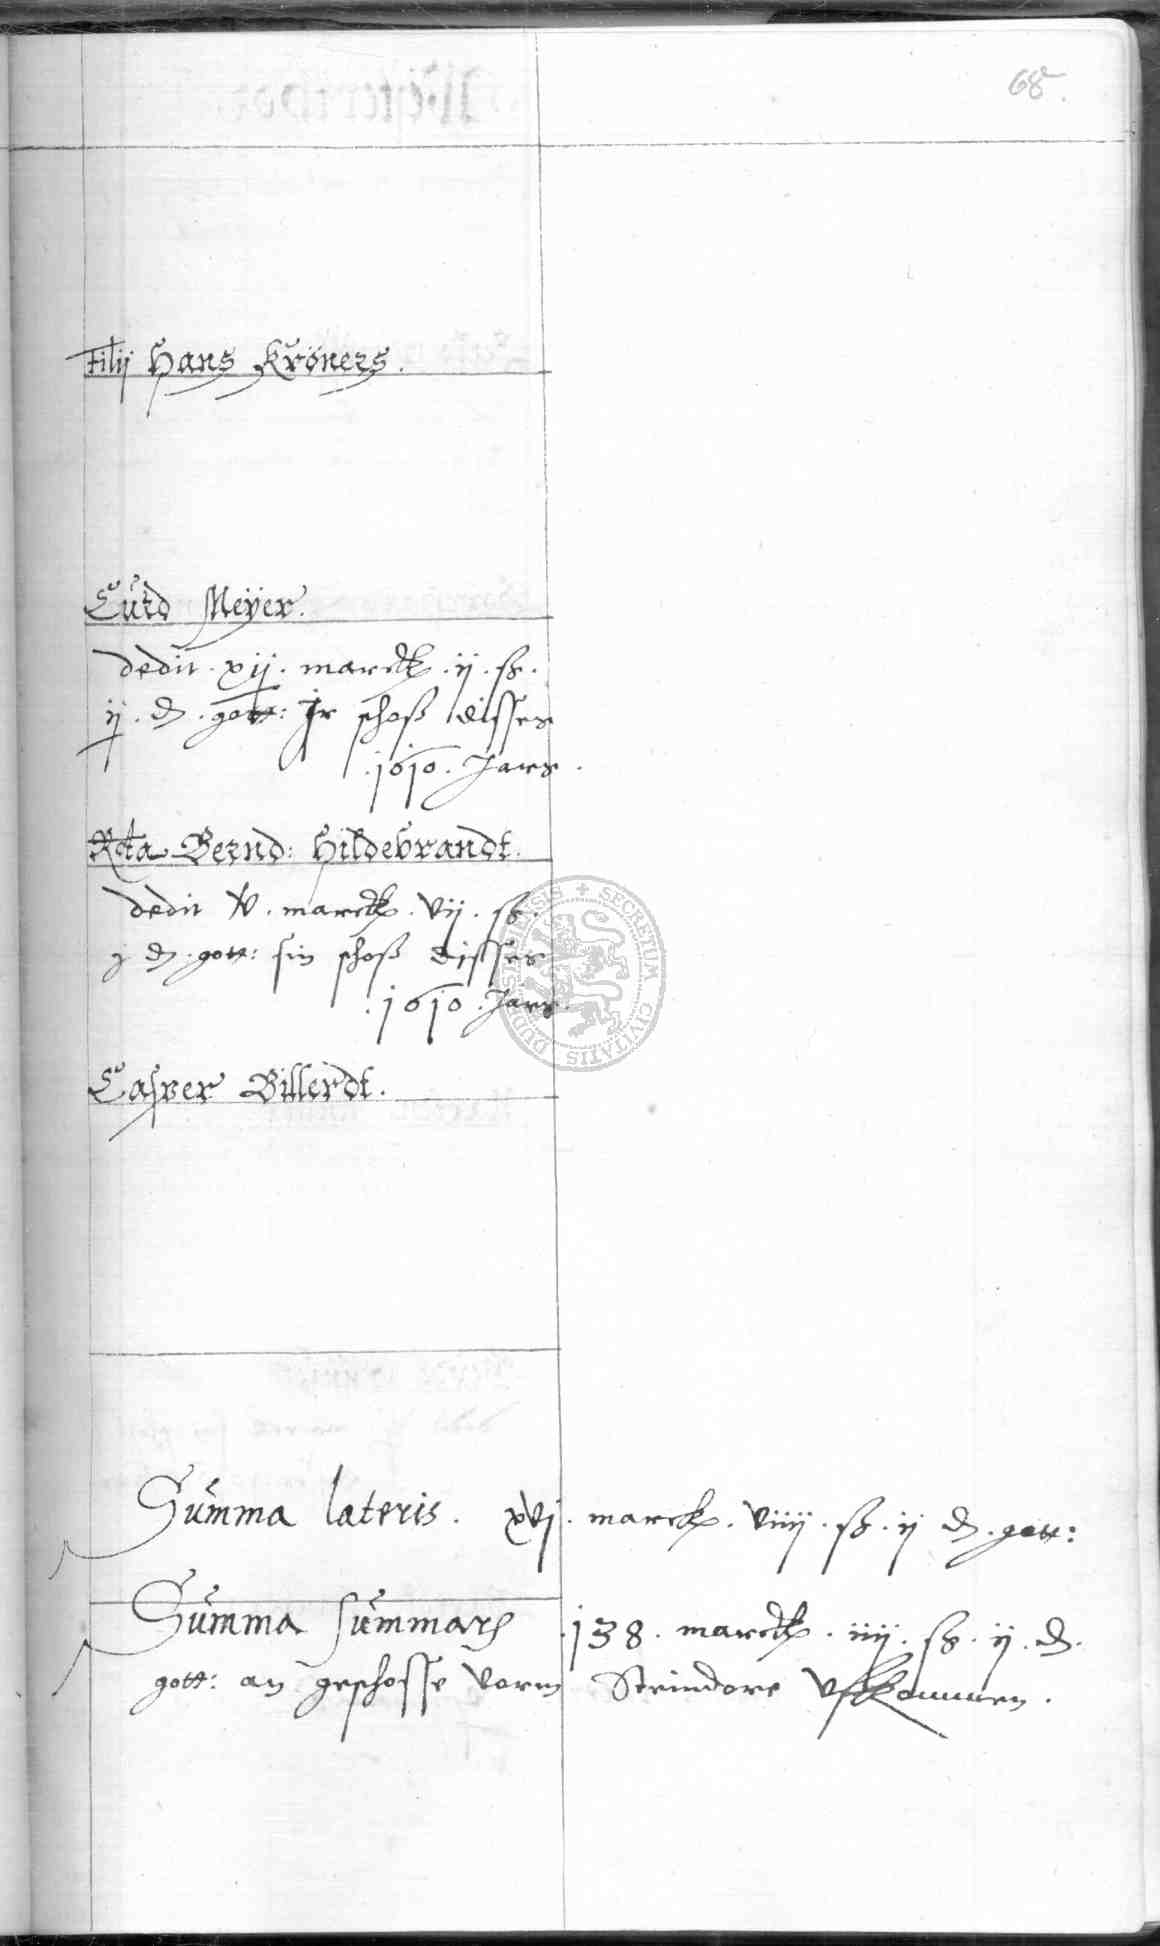 68r
Filij Hans Kröners.
Curd Meÿer.
dedit. xij. marck. ij. ß.
ij. d. gott: Jr schoß disses
.1610. Jars.
Rcta Bernd: Hildebrandt.
dedit iv. marck. vij. ß.
j d. gott: sin schoß disses
.1610. Jars.
Casper Billerdt.
SIGILLUM SECRETUM CIVITATIS DUDERSTADIENSIS
Summa lateris. xvj. marck. viiij. ß. ij d. gott:
Summa summarum 138. marck. iiij. ß. ij. d.
gott: an geschosse vorm Steindore uffkommen.